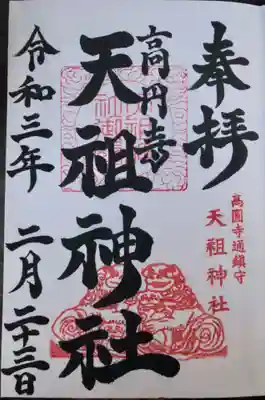 奉拝
高円寺
天祖神社
令和三年 二月二十三日
高圓寺通鎮守
天祖神社